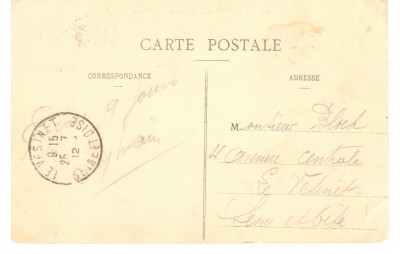 CARTE POSTALE
CORRESPONDANCE
ADRESSE
9 jours
LE VESINET
SEINE ET OISE
9 15
25 7
12
Monsieur
4 avenue centrale
Le Vesinet
Seine et Oise